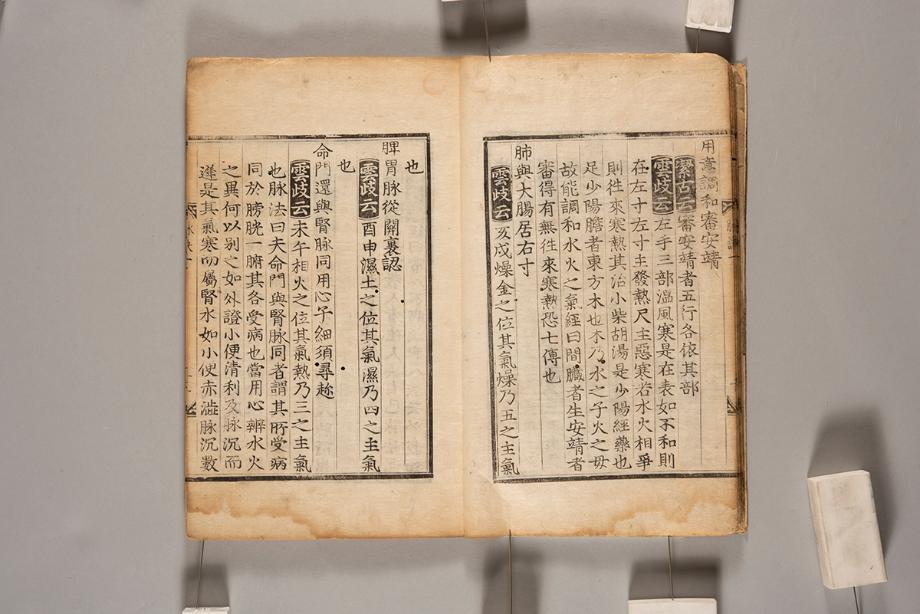 用意調和審安靖
潔古云審安靖者五行各依其部
雲歧云左手三部溫風寒是在表如不和則
在左寸左寸主發熱尺主惡寒若水火相爭
則徃來寒熱其治小柴胡湯是少陽經藥也
足少陽膽者東方木也木乃水之子火之母
故能調和水火之氣經曰間臟者生安靖者
審得有無徃來寒熱恐七傳也
肺與大腸居右寸
雲歧云亥戌燥金之位其氣燥乃五之主氣
也
脾胃脉從關裏認
雲歧云酉申濕土之位其氣濕乃四之主氣
也
命門還與腎脉同用心子細須尋趂
雲歧云未午相火之位其氣熱乃三之主氣
也脉法曰夫命門與腎脉同者謂其所受病
同於膀胱一腑其各受病也當用心辨水火
之異何以别之如外證小便清利及脉沉而
遲是其氣寒而屬腎水如小便赤澁脉沉數